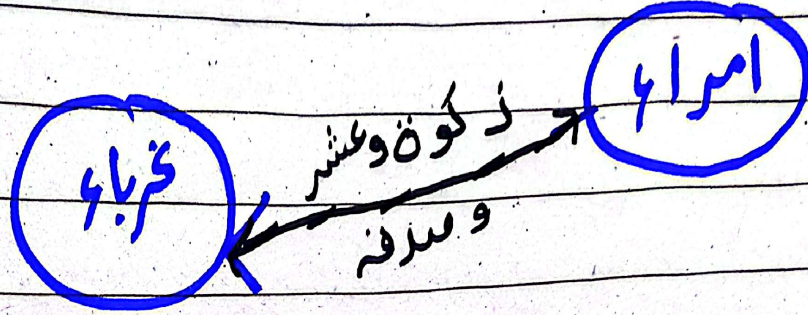 امراء
زکوۃ وعشر
وصدقہ
غرباء